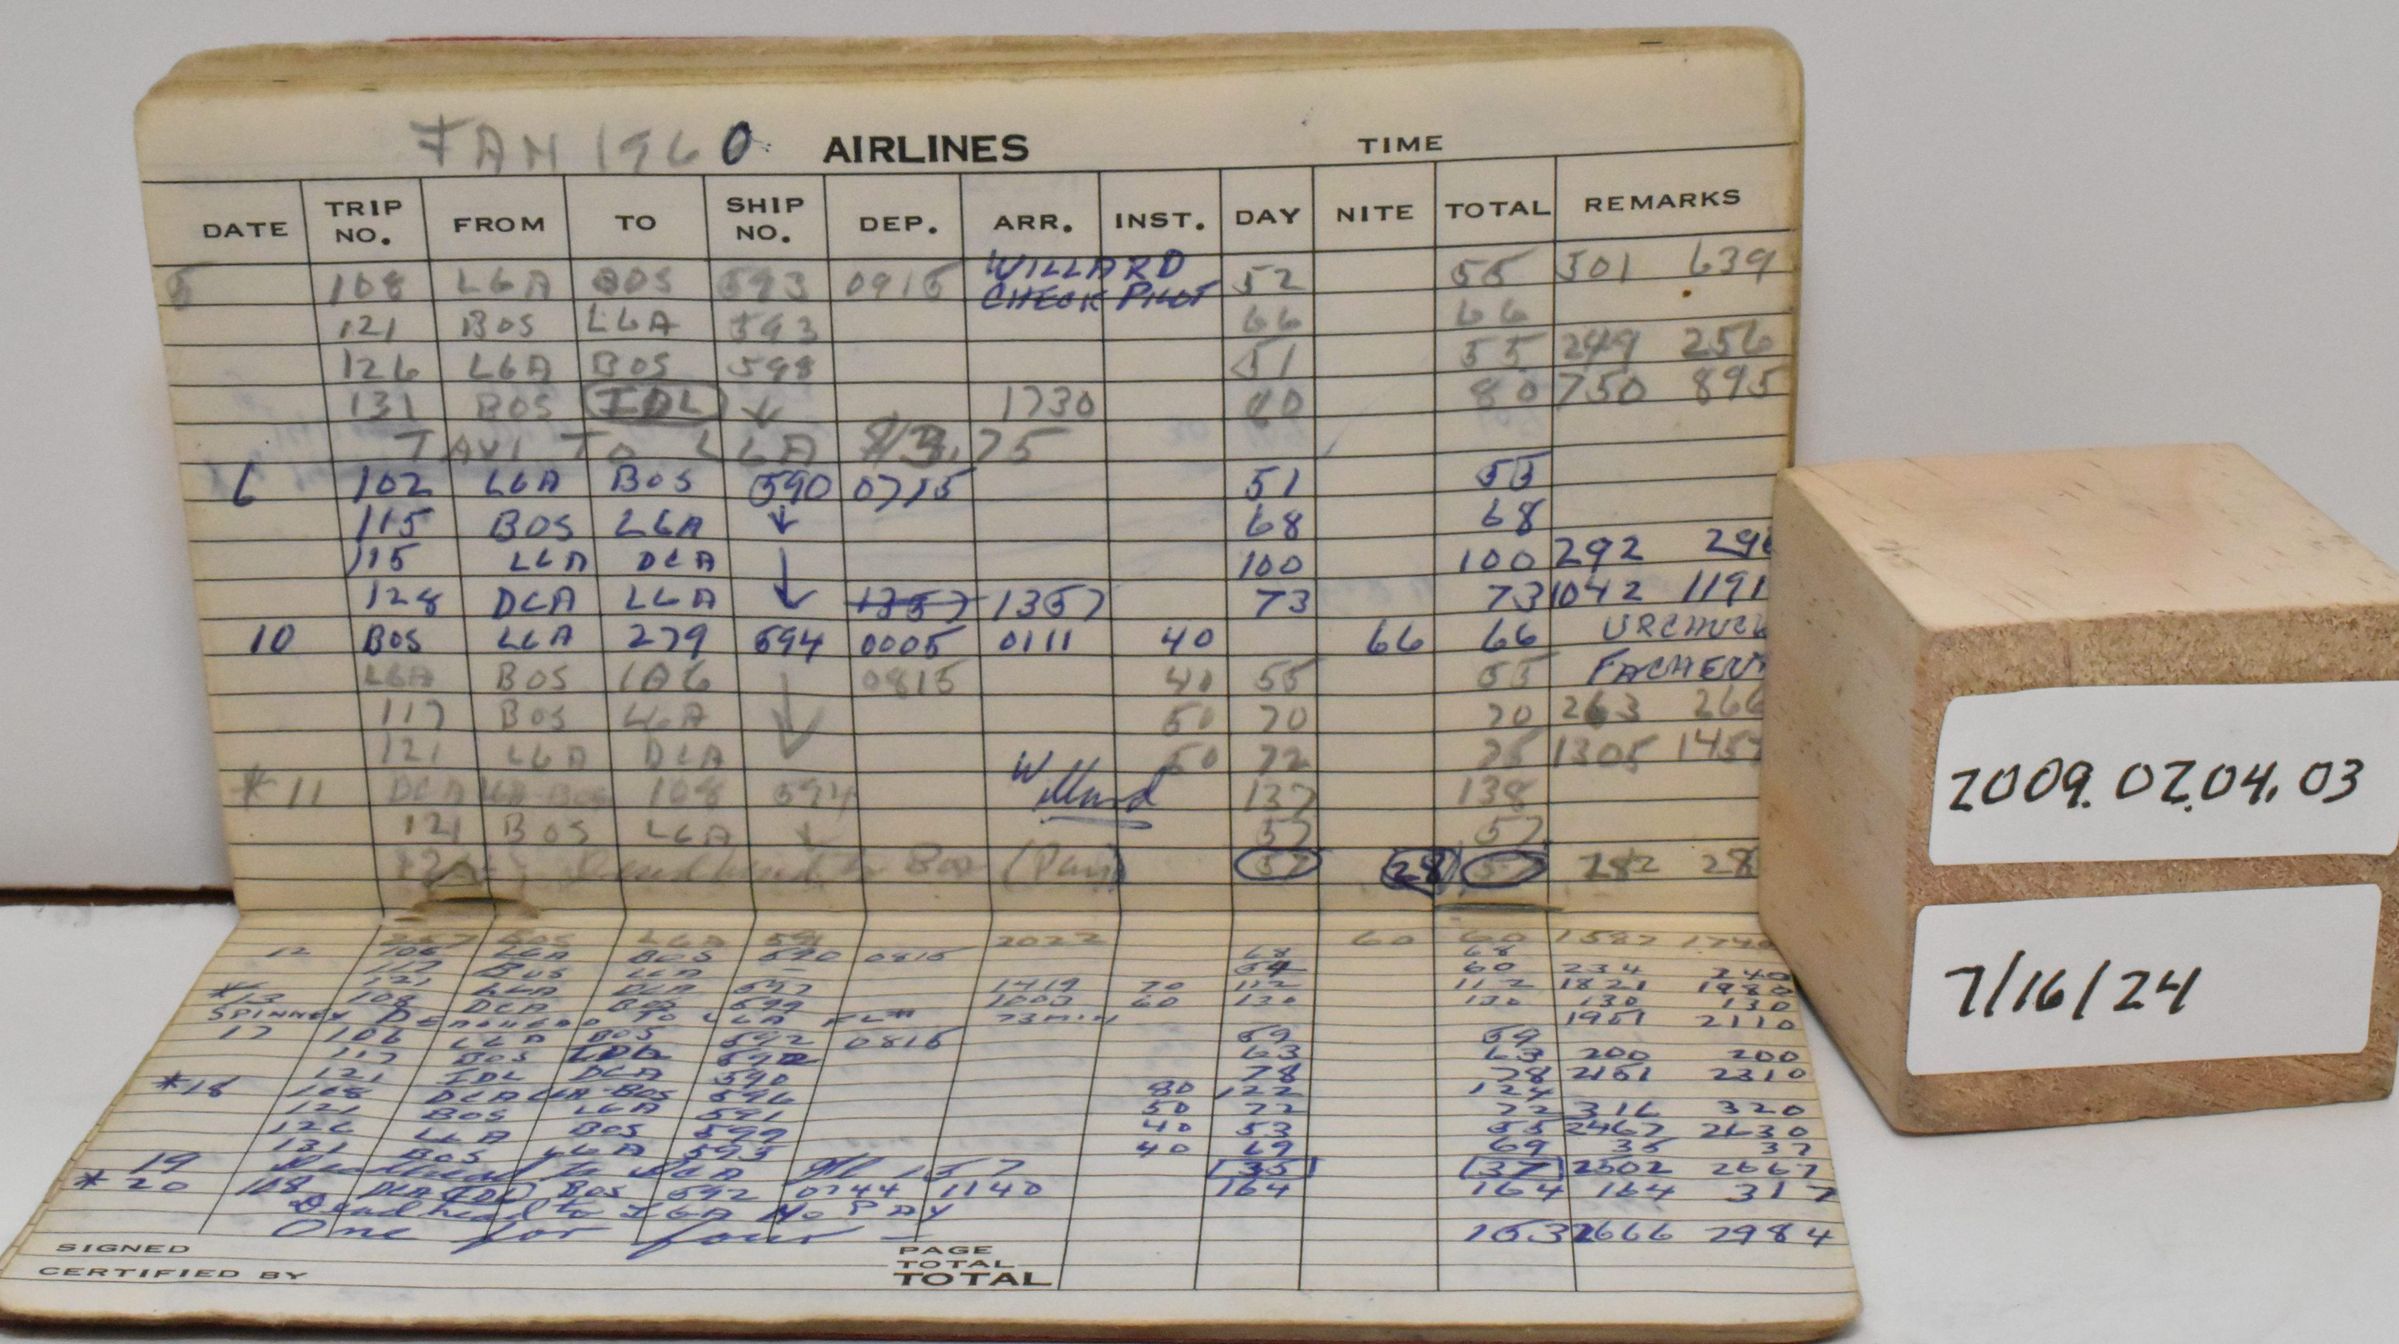 JAN 1960 AIRLINES TIME
DATE TRIP NO. FROM TO SHIP NO. DEP. ARR. INST. DAY NITE TOTAL REMARKS
5 108 LGA BOS 593 0915 WILLARD CHECK PILOT 52 55 501 639
121 BOS LGA 593 66 66
126 LGA BOS 598 51 55 249 256
131 BOS IDL 1730 80 750 895
TAXI TO LGA
6 102 LGA BOS 590 0715 51 55
115 BOS LGA 68 68
115 LGA DCA 100 100 292
128 DCA LGA 1357 1357 73 73 1042 1191
10 BOS LGA 279 594 0005 0111 40 66 66
LGA BOS 106 0815 40 55 55
117 BOS LGA 50 70 70 263 266
121 LGA DCA 50 72 75 1305
* 11 DCA LGA-BOS 108 594 Willard 137 138
121 BOS LGA 57 57
Deadhead to Bos (Pay) 57 28 57 282 28
257 BOS LGA 2022 60 60 1587
12 106 LGA BOS 590 0815 68 68
117 BOS LGA 60 234 240
121 LGA DCA 1419 70 112 112 1821 1980
* 13 108 DCA BOS 599 60 130 130 130 130
SPINNEY TO LGA 73 MIN 1951 2110
17 106 LGA BOS 592 0815 59 59
117 BOS IDL 63 63 200 200
121 IDL DCA 590 78 78 2151 2310
* 18 108 DCA LGA-BOS 596 80 122 124
121 BOS LGA 591 50 72 72 316 320
126 LGA BOS 599 40 53 55 2467 2630
131 BOS LGA 595 40 69 69 35 37
19 Deadhead to DCA 35 37 2502 2667
* 20 108 DCA BOS 592 0744 1140 164 164 164 317
Deadhead to LGA No PAY
One for four – 2666 2984
SIGNED PAGE TOTAL
CERTIFIED BY TOTAL
2009.02.04.03
7/16/24